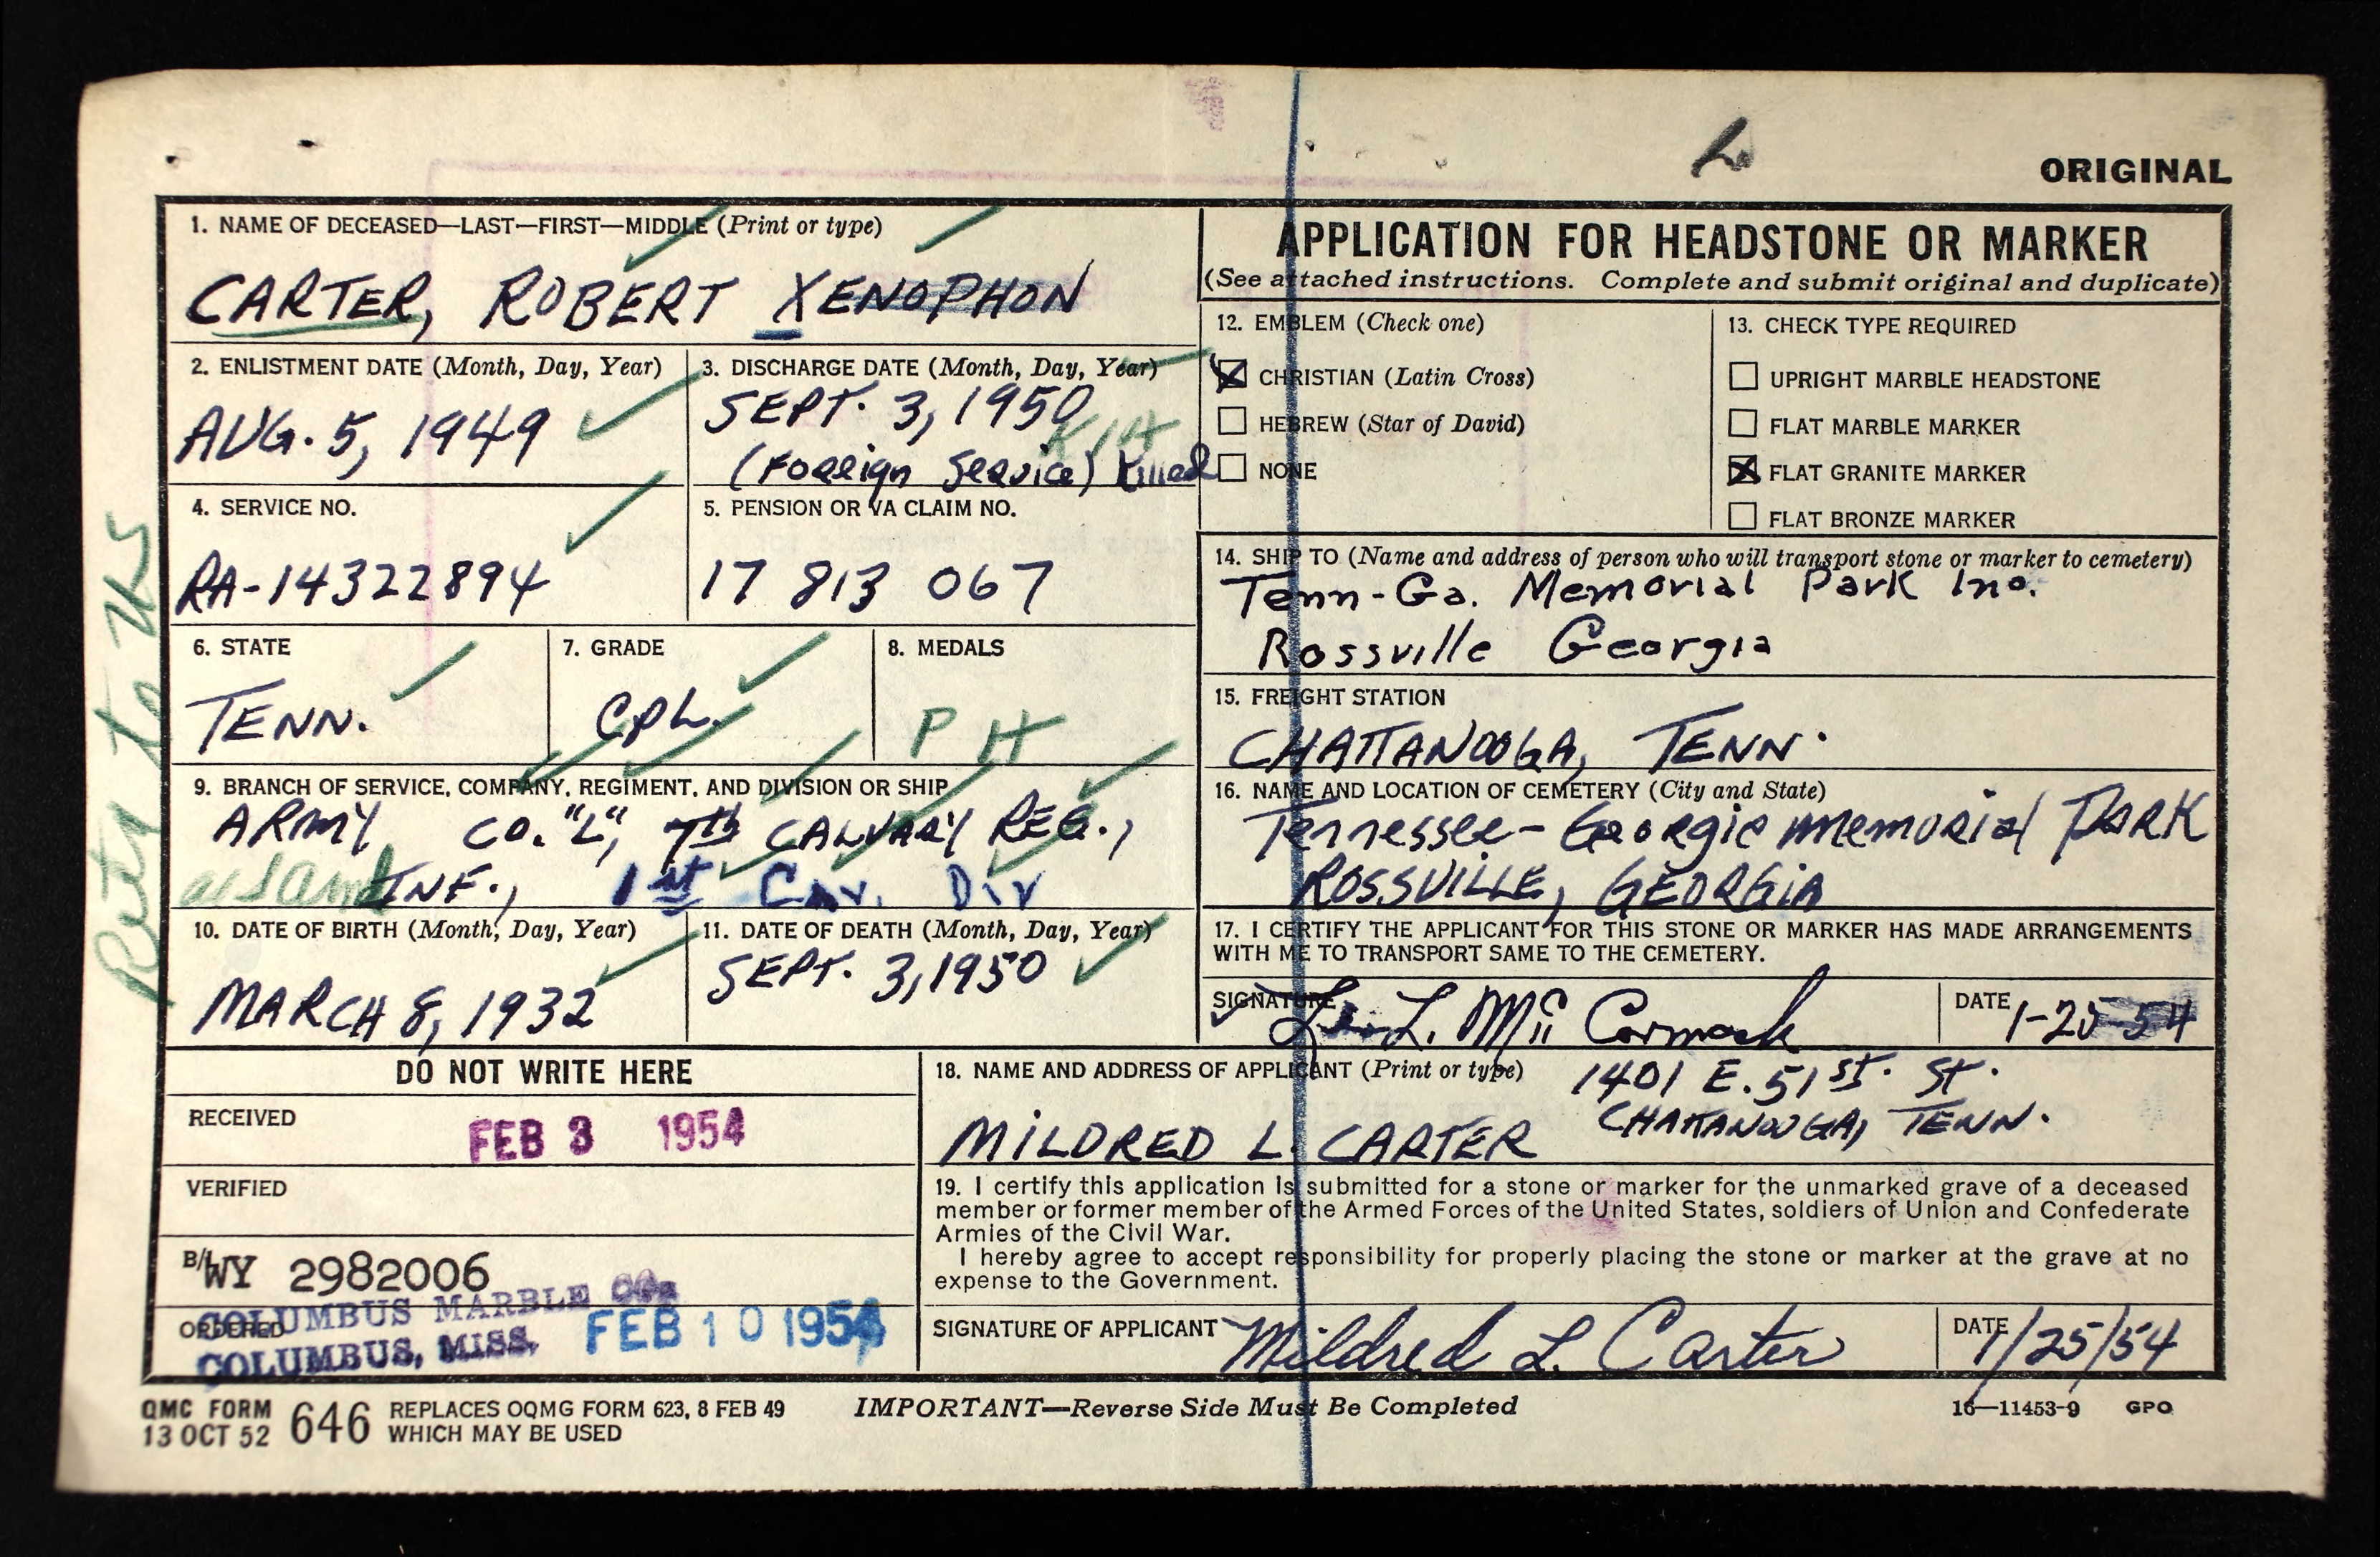 ORIGINAL
1. NAME OF DECEASED—LAST—FIRST—MIDDLE (Print or type)
CARTER, ROBERT XENOPHON
APPLICATION FOR HEADSTONE OR MARKER
(See attached instructions. Complete and submit original and duplicate)
2. ENLISTMENT DATE (Month, Day, Year)
AUG. 5, 1949
3. DISCHARGE DATE (Month, Day, Year)
SEPT. 3, 1950
KIA
(Foreign Service) Killed
4. SERVICE NO.
RA-14322894
5. PENSION OR VA CLAIM NO.
17 813 067
6. STATE
TENN.
7. GRADE
CPL.
8. MEDALS
P H
9. BRANCH OF SERVICE, COMPANY, REGIMENT, AND DIVISION OR SHIP
ARMY CO. "L", 7th CALVARY REG.,
INF., 1st Cav. Div
10. DATE OF BIRTH (Month, Day, Year)
MARCH 8, 1932
11. DATE OF DEATH (Month, Day, Year)
SEPT. 3, 1950
12. EMBLEM (Check one)
CHRISTIAN (Latin Cross)
HEBREW (Star of David)
NONE
13. CHECK TYPE REQUIRED
UPRIGHT MARBLE HEADSTONE
FLAT MARBLE MARKER
FLAT GRANITE MARKER
FLAT BRONZE MARKER
14. SHIP TO (Name and address of person who will transport stone or marker to cemetery)
Tenn-Ga. Memorial Park Inc.
Rossville Georgia
15. FREIGHT STATION
CHATTANOOGA, TENN.
16. NAME AND LOCATION OF CEMETERY (City and State)
Tennessee-Georgia Memorial PARK
ROSSVILLE, GEORGIA
17. I CERTIFY THE APPLICANT FOR THIS STONE OR MARKER HAS MADE ARRANGEMENTS
WITH ME TO TRANSPORT SAME TO THE CEMETERY.
SIGNATURE
L. McCormack
DATE
1-25-54
DO NOT WRITE HERE
RECEIVED
FEB 3 1954
VERIFIED
B/L
WY 2982006
ORDERED
COLUMBUS MARBLE CO.
COLUMBUS, MISS.
FEB 10 1954
18. NAME AND ADDRESS OF APPLICANT (Print or type)
1401 E. 51st. St.
CHATTANOOGA, TENN.
MILDRED L. CARTER
19. I certify this application is submitted for a stone or marker for the unmarked grave of a deceased
member or former member of the Armed Forces of the United States, soldiers of Union and Confederate
Armies of the Civil War.
I hereby agree to accept responsibility for properly placing the stone or marker at the grave at no
expense to the Government.
SIGNATURE OF APPLICANT
Mildred L. Carter
DATE
1/25/54
QMC FORM
13 OCT 52
646
REPLACES OQMG FORM 623, 8 FEB 49
WHICH MAY BE USED
IMPORTANT—Reverse Side Must Be Completed
16—11453-9 GPO